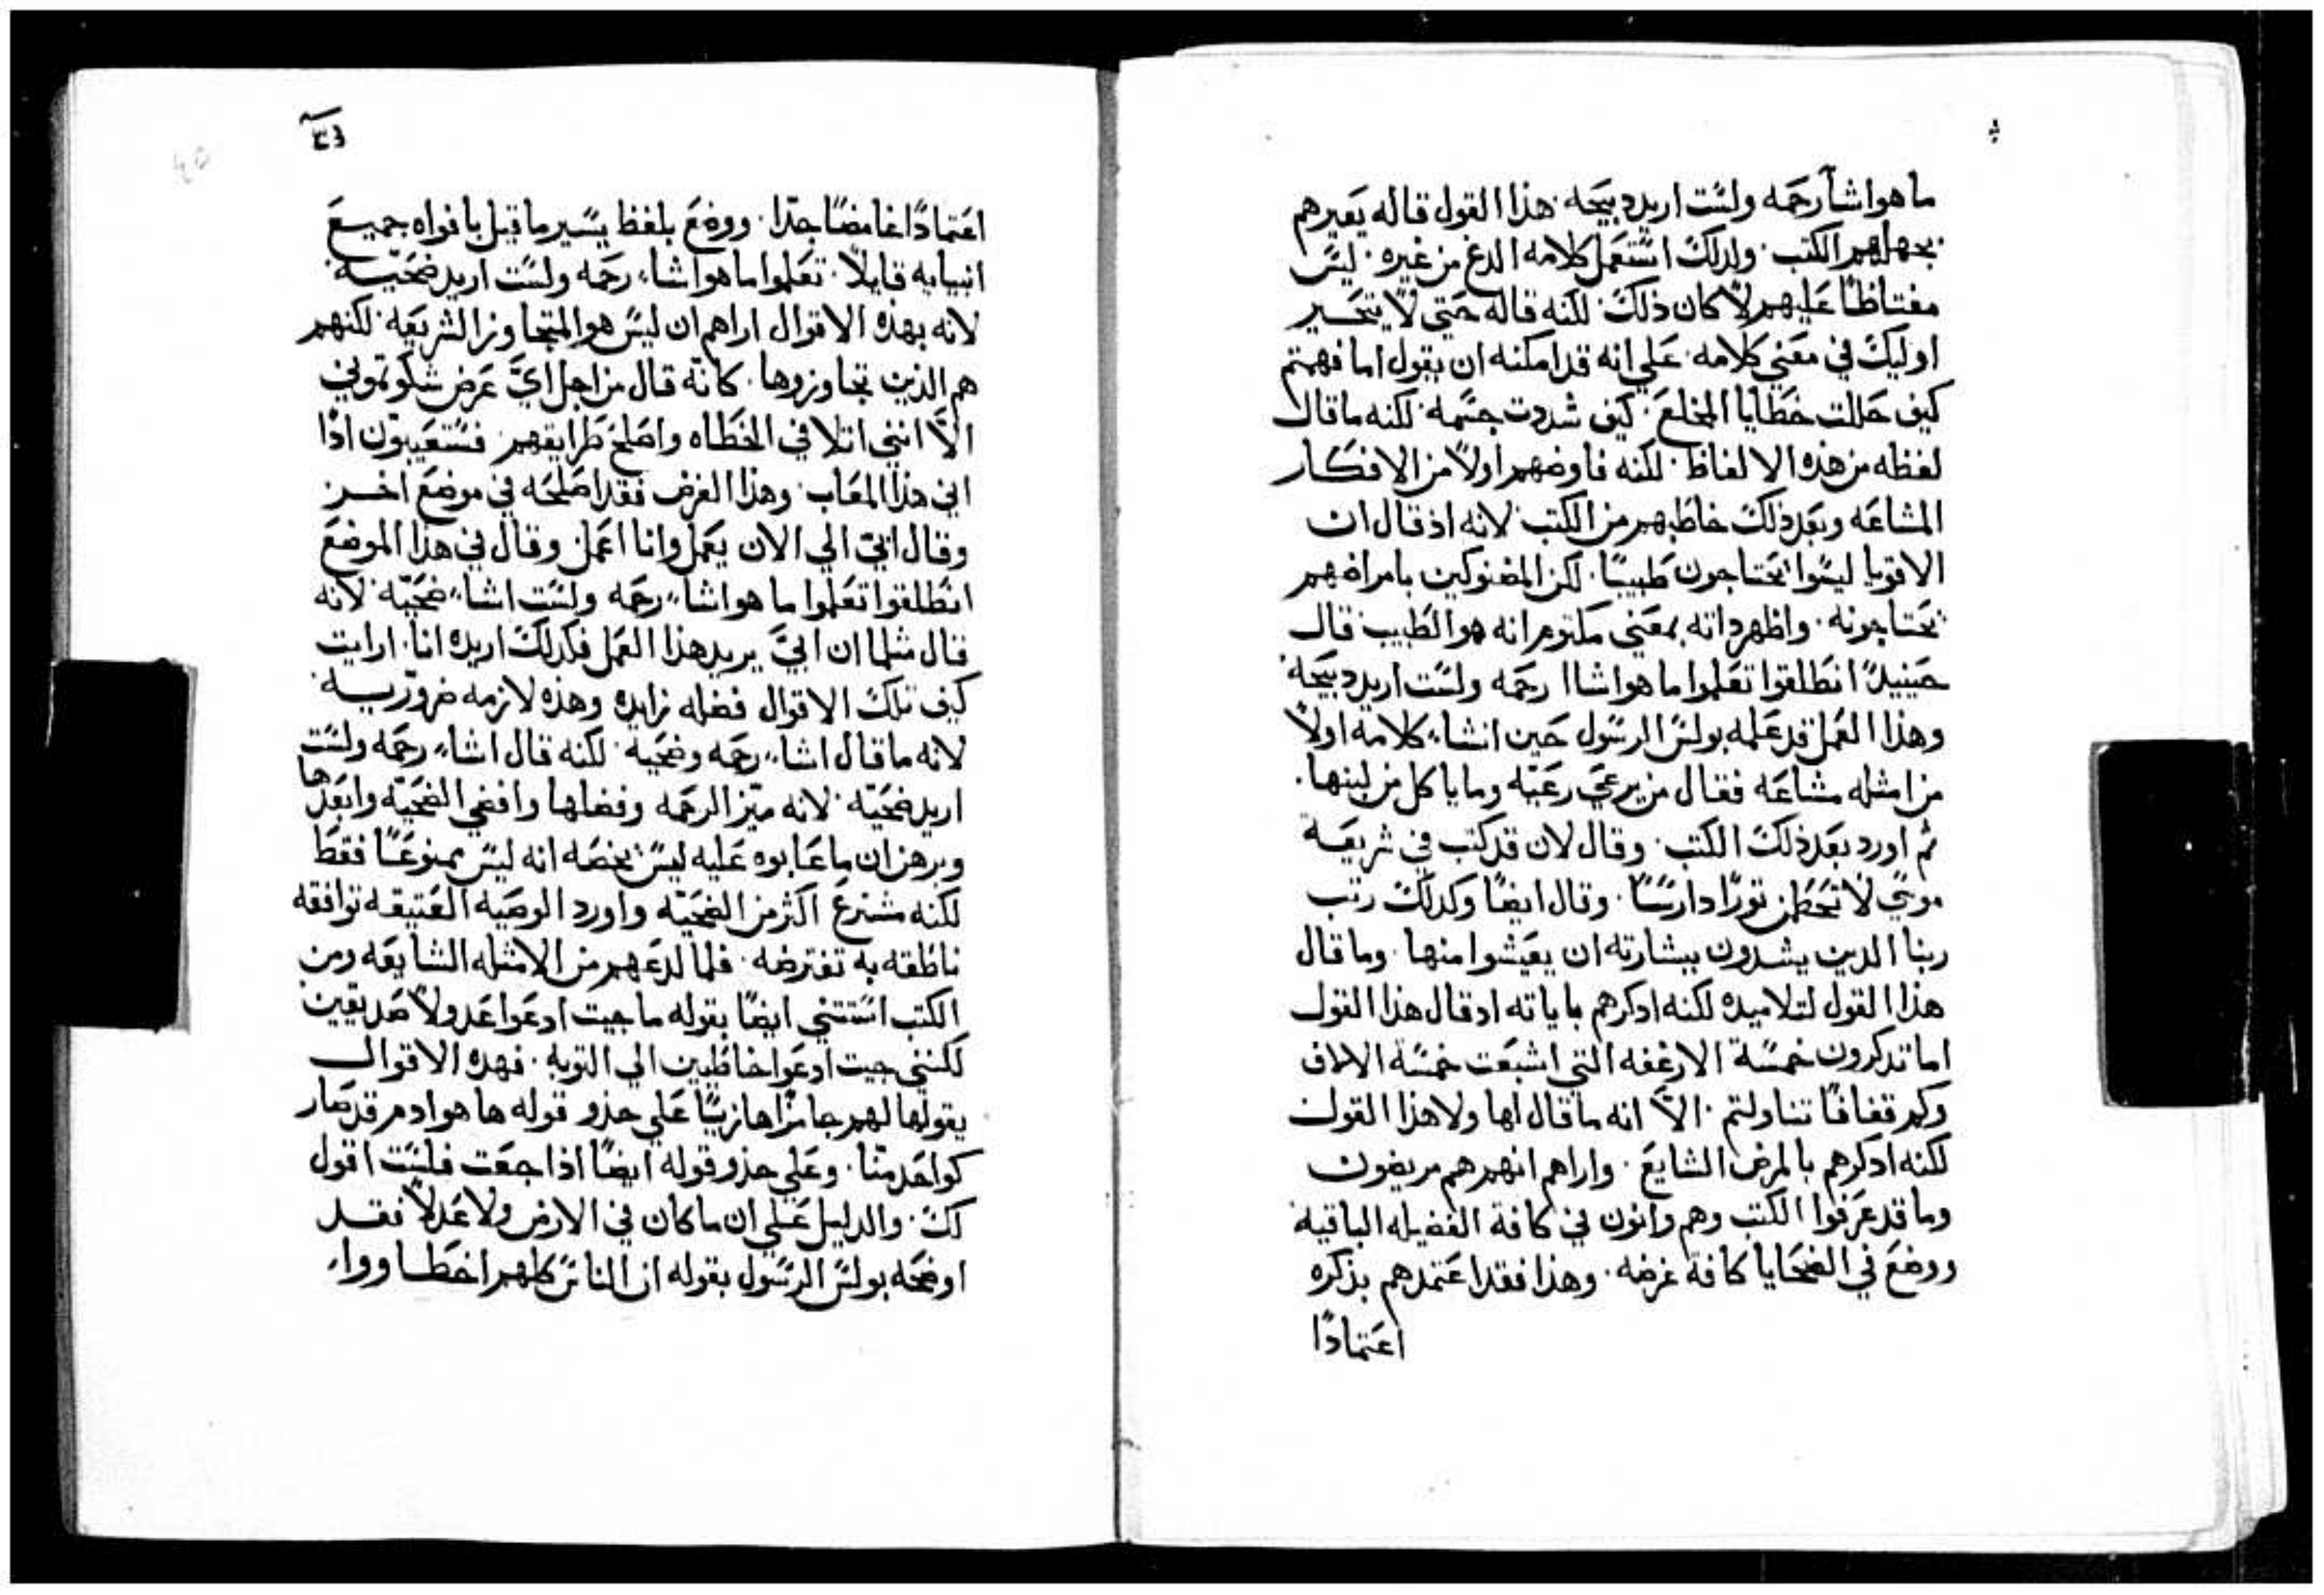 ما هو اشآ رحمه ولست اريد دبيحه. هذا القول قاله يعيرهم
بجهلهم الكتب. ولدلك استعمل كلامه الدغ من غيره. ليس
مغتاظا عليهم لا كان ذلك. لكنه قاله حتي لا يتحير
اوليك في معني كلامه. علي انه قد امكنه ان يقول اما فهمتم
كيف حللت خطايا المخلع. كيف شددت جسمه. لكنه ما قال
لفظه من هذه الالفاظ. لكنه فاوضهم اولاً من الافكار
المشاعه وبعد ذلك خاطبهم من الكتب. لانه اذ قال ان
الاقويا ليسوا يحتاجون طبيبًا. لكن المضنوكين بامراضهم
يحتاجونه. واظهر داته بمعني مكتوم انه هو الطبيب قال
حينيدً انطلقوا تعلموا ما هو اشاا رحمه ولست اريد دبيحه.
وهذا العمل قد عمله بولس الرسول حين انشاء كلامه اولاً
من امثله مشاعه فقال من يرعي رعيه وما ياكل من لبنها.
ثم اورد بعد ذلك الكتب. وقال لان قد كتب في شريعة
موسي لا تخطمن تورًا دارسًا. وقال ايضًا وكدلك رتب
ربنا الدين يشدون ببشارته ان يعيشوا منها. وما قال
هذا القول لتلاميده لكنه ادكرهم باياته ادقال هذا القول
اما تدكرون خمسة الارغفه التي اشبعت خمسة الالاف
وكم قفافًا تناولتم. الاَّ انه ما قال لها ولا هذا القول
لكنه ادكرهم بالمرض الشايع. واراهم انهم هم مريضون
وما قد عرفوا الكتب وهم وانون في كافة الفضيله الباقية
ووضع في الضحايا كافة غرضه. وهذا فقد اعتمدهم بذكره
اعتمادًا
40
اعتمادًا غامضًا جدًا. ووضع بلفظ يسير ما قيل بافواه جميع
انبيايه قايلاً. تعلموا ما هو اشاء رحمه ولست اريد ضحيّه.
لانه بهذه الاقوال اراهم ان ليس هو المتجاوز الشريعه. لكنهم
هم الذين تجاوزوها. كانّه قال من اجل ايَّ عرض شكوتموني
الاَّ انني اتلافي الخطاه واصلح طرايقهم. فستعيبون ادًا
ابي هذا المعاب. وهذا الغرض فقد اصلحه في موضع اخر
وقال ابي الي الان يعمل وانا اعمل وقال في هذا الموضع
انطلقوا تعلموا ما هو اشاء رحمه ولست اشاء ضحيّه. لانه
قال مثلما ان ابيَّ يريد هذا العمل فكدلك اريده انا. ارايت
كيف تلك الاقوال فضله زايده وهذه لازمه ضروريه.
لانه ما قال اشاء رحمه وضحيه. لكنه قال اشاء رحمه ولست
اريد ضحيّه. لانه ميّز الرحمه وفضلها واقصي الضحيّه وابعدها
وبرهن ان ما عابوه عليه ليس يخصه انه ليس ممنوعًا فقط
لكنه مشترع اكثر من الضحيّه واورد الوصيه العتيقه توافقه
ناطقه به تفترضه. فلما لدعهم من الامثله الشايعه ومن
الكتب استتني ايضًا بقوله ما جيت ادعوا عدولاً صديقين
لكنني جيت ادعوا خاطيين الي التوبه. فهده الاقوال
يقولها لهم جامزًا هازيًا علي حذو قوله ها هو ادم قد صار
كواحد منّا. وعلي حذو قوله ايضًا اذا جعت فلست اقول
لك. والدليل علي ان ما كان في الارض ولا عدلاً فقد
اوضحه بولس الرسول بقوله ان الناس كلهم اخطاووا